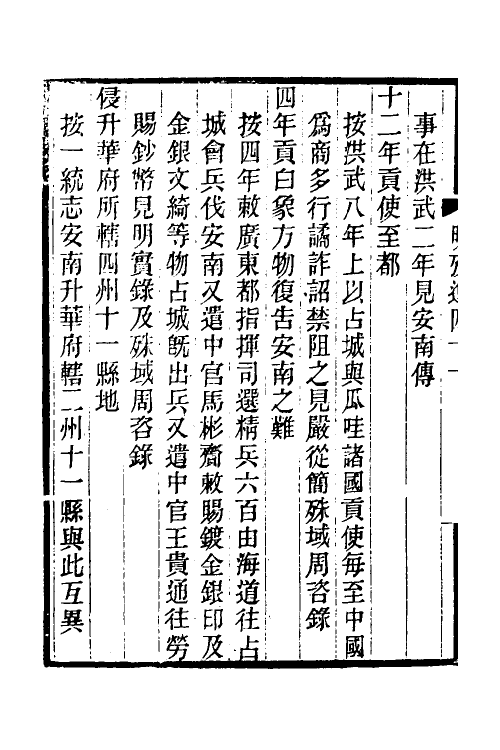 事在洪武二年見安南傳
十二年貢使至都
按洪武八年上以占城與瓜哇諸國貢使每至中國
爲商多行譎詐詔禁阻之見嚴從簡殊域周咨錄
四年貢白象方物復吿安南之難
按四年敕廣東都指揮司選精兵六百由海道往占
城會兵伐安南又遣中官馬彬齎敕賜鍍金銀印及
金銀文綺等物占城旣出兵又遣中官王貴通往勞
賜鈔幣見明實錄及殊域周咨錄
侵升華府所轄四州十一縣地
按一統志安南升華府轄二州十一縣與此互異